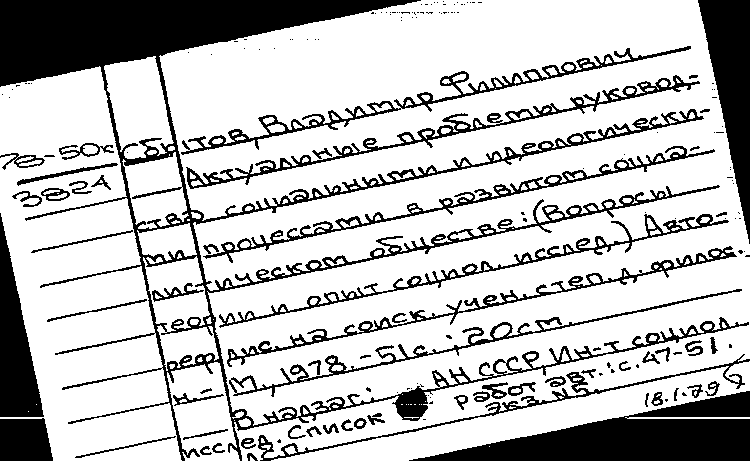 78-50к
3824
Сбытов, Владимир Филиппович.
Актуальные проблемы руковод-
ства социальными и идеологически-
ми процессами в развитом социа-
листическом обществе: (Вопросы
теории и опыт социол. исслед.) Авто-
реф. дис. на соиск. учен. степ. д. филос.
н. - М., 1978. - 51 с. ; 20 см.
В надзаг.: АН СССР, Ин-т социол.
исслед. Список работ авт.: с. 47-51.
экз. №5.
18.1.79